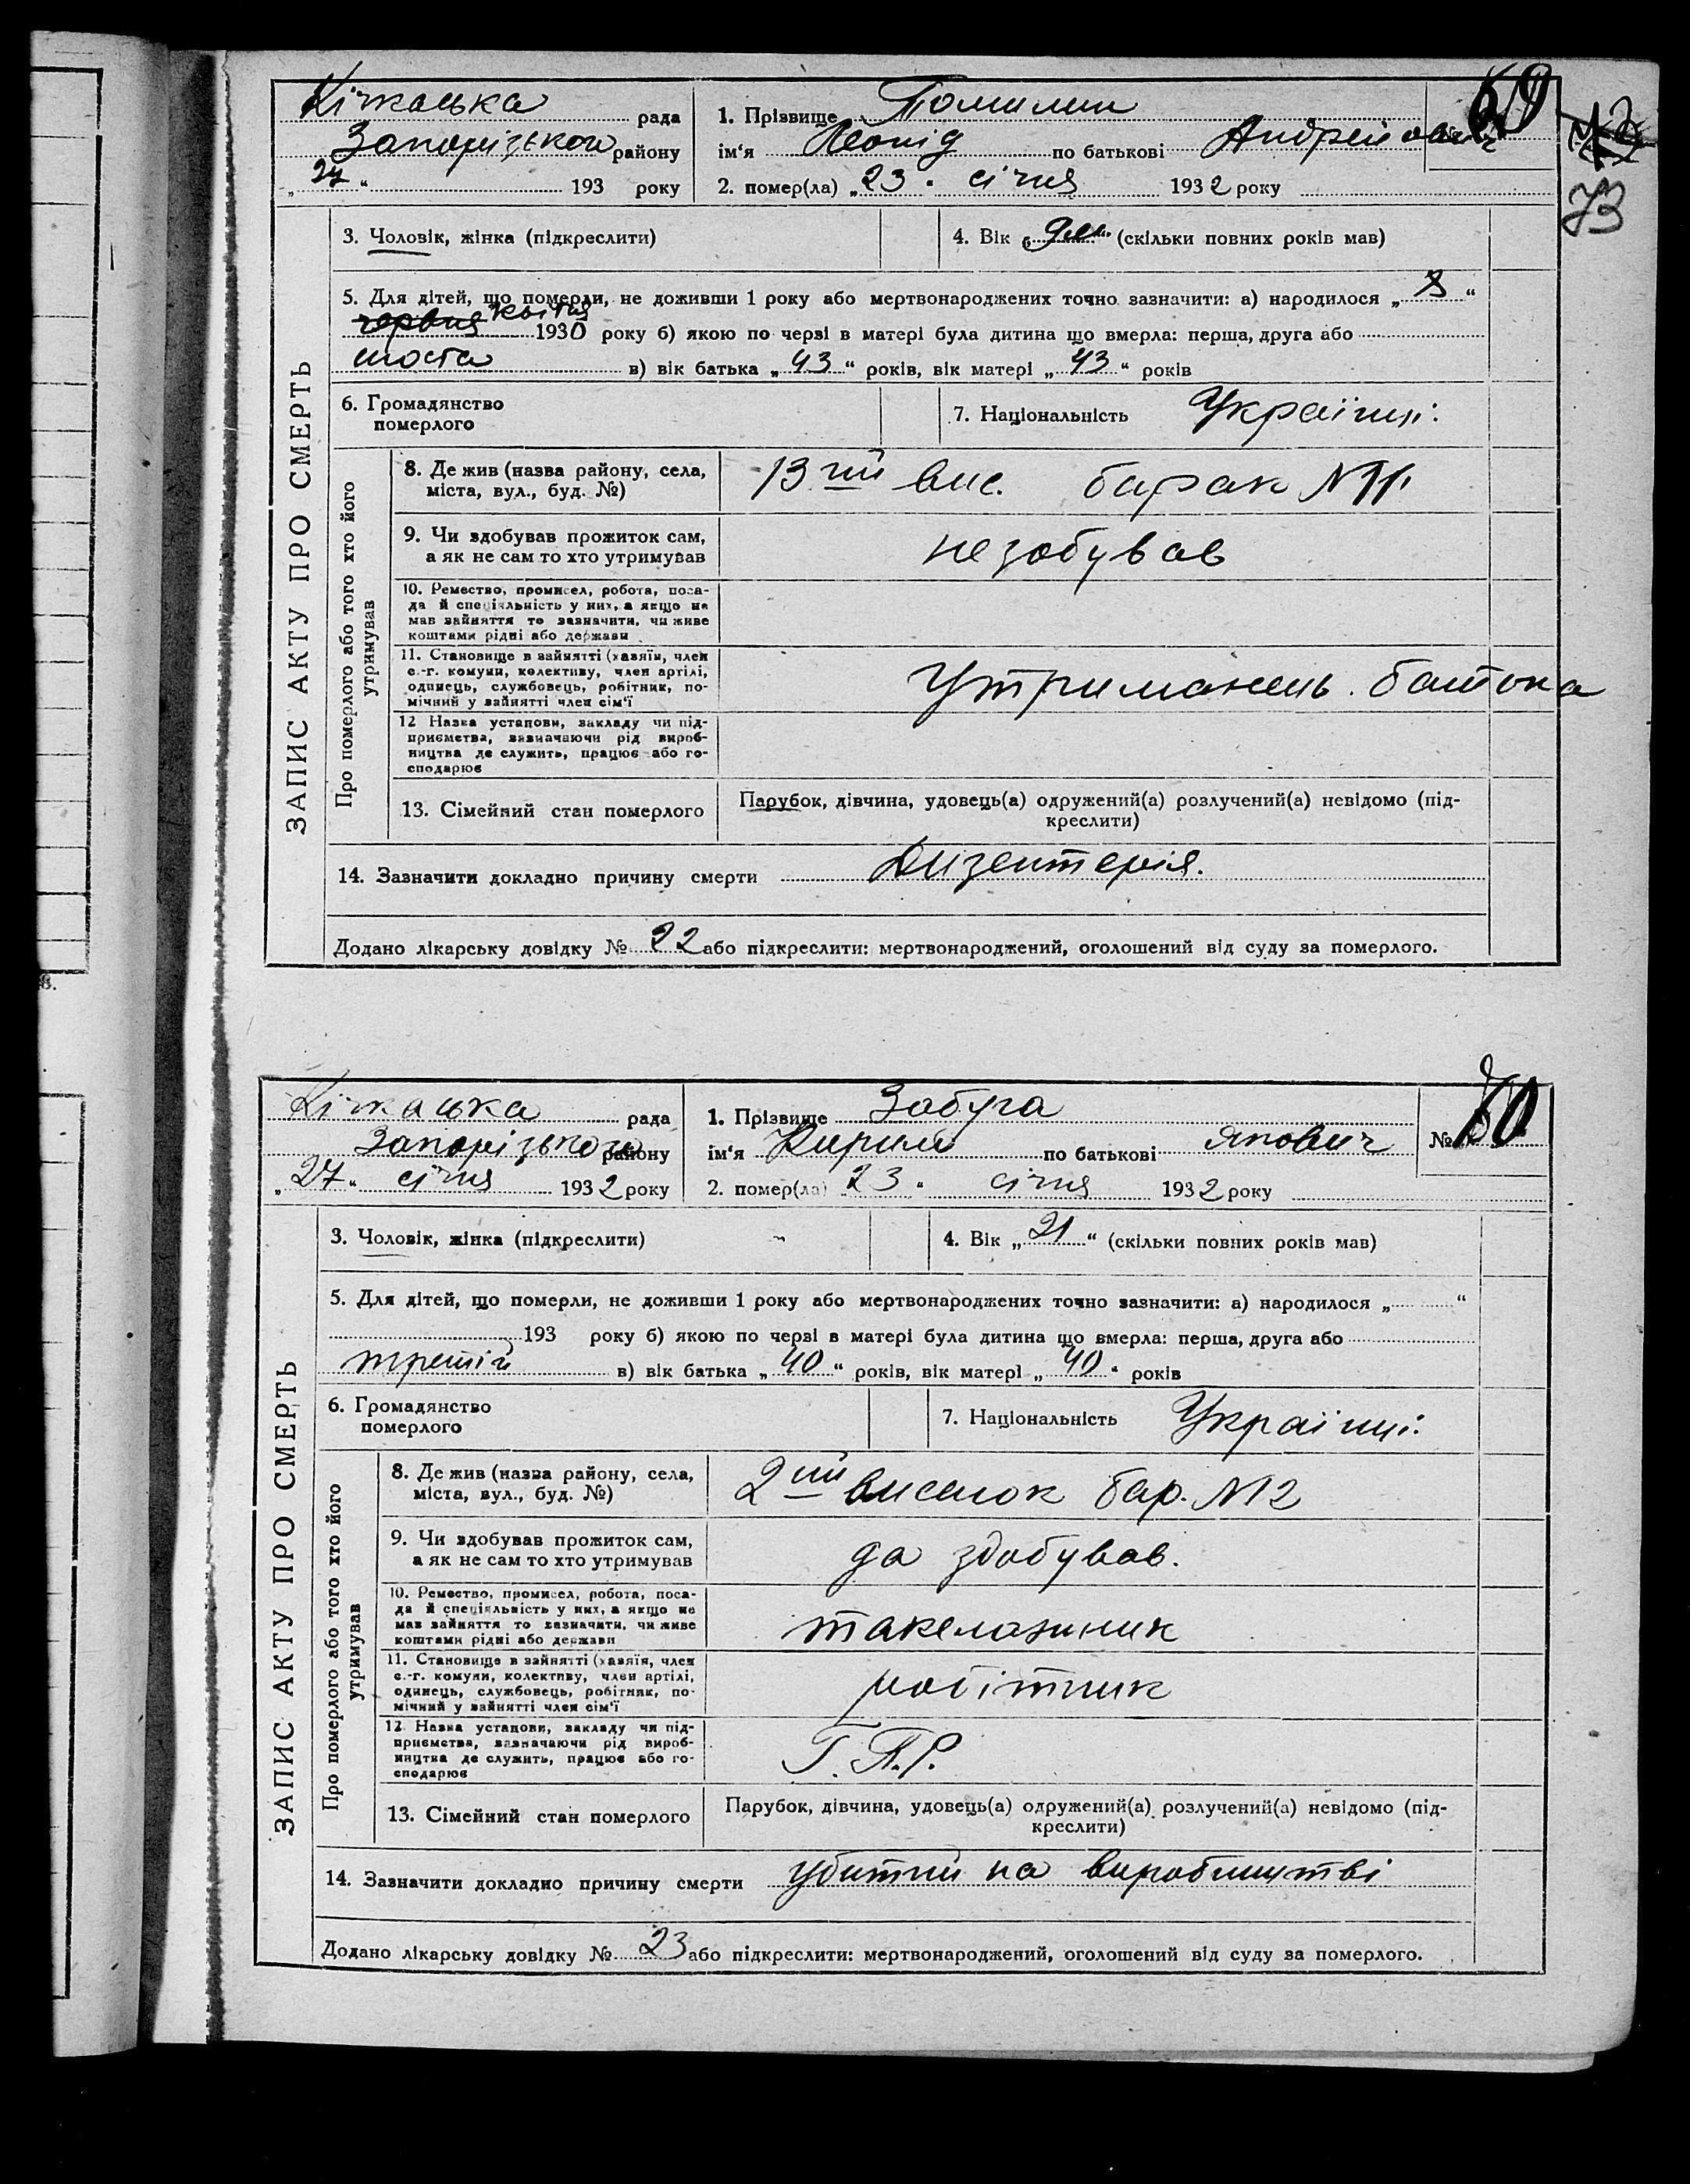 69
73
Кічкаська рада
Запорізького району
„ 27 “ 193 року
1. Прізвище Помилин
ім‘я Леонід по батькові Андрейович
2. помер(ла) „ 23 “ січня 1932 року
ЗАПИС АКТУ ПРО СМЕРТЬ
3. Чоловік, жінка (підкреслити)
4. Вік (скільки повних років мав)
5. Для дітей, що померли, не доживши 1 року або мертвонароджених точно зазначити: а) народилося „ 8 “
червня квітня 1930 року б) якою по черзі в матері була дитина що вмерла: перша, друга або
шоста в) вік батька „ 43 “ років, вік матері „ 43 “ років
6. Громадянство
померлого
7. Національність Україн.
Про померлого або того хто його
утримував
8. Де жив (назва району, села,
міста, вул., буд. №)
13 ий вис. барак №11
9. Чи здобував прожиток сам,
а як не сам то хто утримував
незобував
10. Ремество, промисел, робота, поса-
да й спеціяльність у них, а якщо не
мав зайняття то зазначити, чи живе
коштами рідні або держави
11. Становище в зайнятті (хазяїн, член
с.-г. комуни, колективу, член артілі,
одинець, службовець, робітник, по-
мічний у зайнятті член сім‘ї
Утриманець батька
12 Назва установи, закладу чи під-
приємства, зазначаючи рід вироб-
ництва де служить, працює або го-
сподарює
13. Сімейний стан померлого
Парубок, дівчина, удовець(а) одружений(а) розлучений(а) невідомо (під-
креслити)
14. Зазначити докладно причину смерти Дизентерія.
Додано лікарську довідку № 22 або підкреслити: мертвонароджений, оголошений від суду за померлого.
Кічкаська рада
Запорізького району
„ 27 “ січня 1932 року
1. Прізвище Забуга
ім‘я Кирило по батькові Япович
2. помер(ла) 23 “ січня 1932 року
№ 70
ЗАПИС АКТУ ПРО СМЕРТЬ
3. Чоловік, жінка (підкреслити)
4. Вік „ 21 “ (скільки повних років мав)
5. Для дітей, що померли, не доживши 1 року або мертвонароджених точно зазначити: а) народилося „ “
193 року б) якою по черзі в матері була дитина що вмерла: перша, друга або
третій в) вік батька „ 40 “ років, вік матері „ 40 “ років
6. Громадянство
померлого
7. Національність Україн.
Про померлого або того хто його
утримував
8. Де жив (назва району, села,
міста, вул., буд. №)
2 ий виселок бар. №2
9. Чи здобував прожиток сам,
а як не сам то хто утримував
да здобував.
10. Ремество, промисел, робота, поса-
да й спеціяльність у них, а якщо не
мав зайняття то зазначити, чи живе
коштами рідні або держави
такелажник
11. Становище в зайнятті (хазяїн, член
с.-г. комуни, колективу, член артілі,
одинець, службовець, робітник, по-
мічний у зайнятті член сім‘ї
робітник
12 Назва установи, закладу чи під-
приємства, зазначаючи рід вироб-
ництва де служить, працює або го-
сподарює
Г.П.Р.
13. Сімейний стан померлого
Парубок, дівчина, удовець(а) одружений(а) розлучений(а) невідомо (під-
креслити)
14. Зазначити докладно причину смерти убитий на виробництві
Додано лікарську довідку № 23 або підкреслити: мертвонароджений, оголошений від суду за померлого.